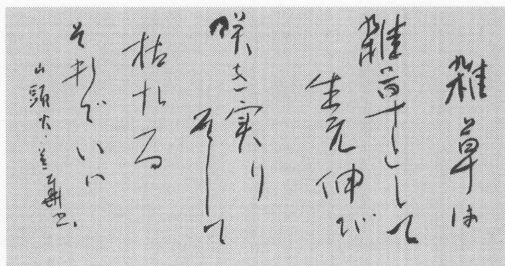 雑草は
雑草として
生え伸び
咲き実り
そして
枯れる
それでいい
山頭火